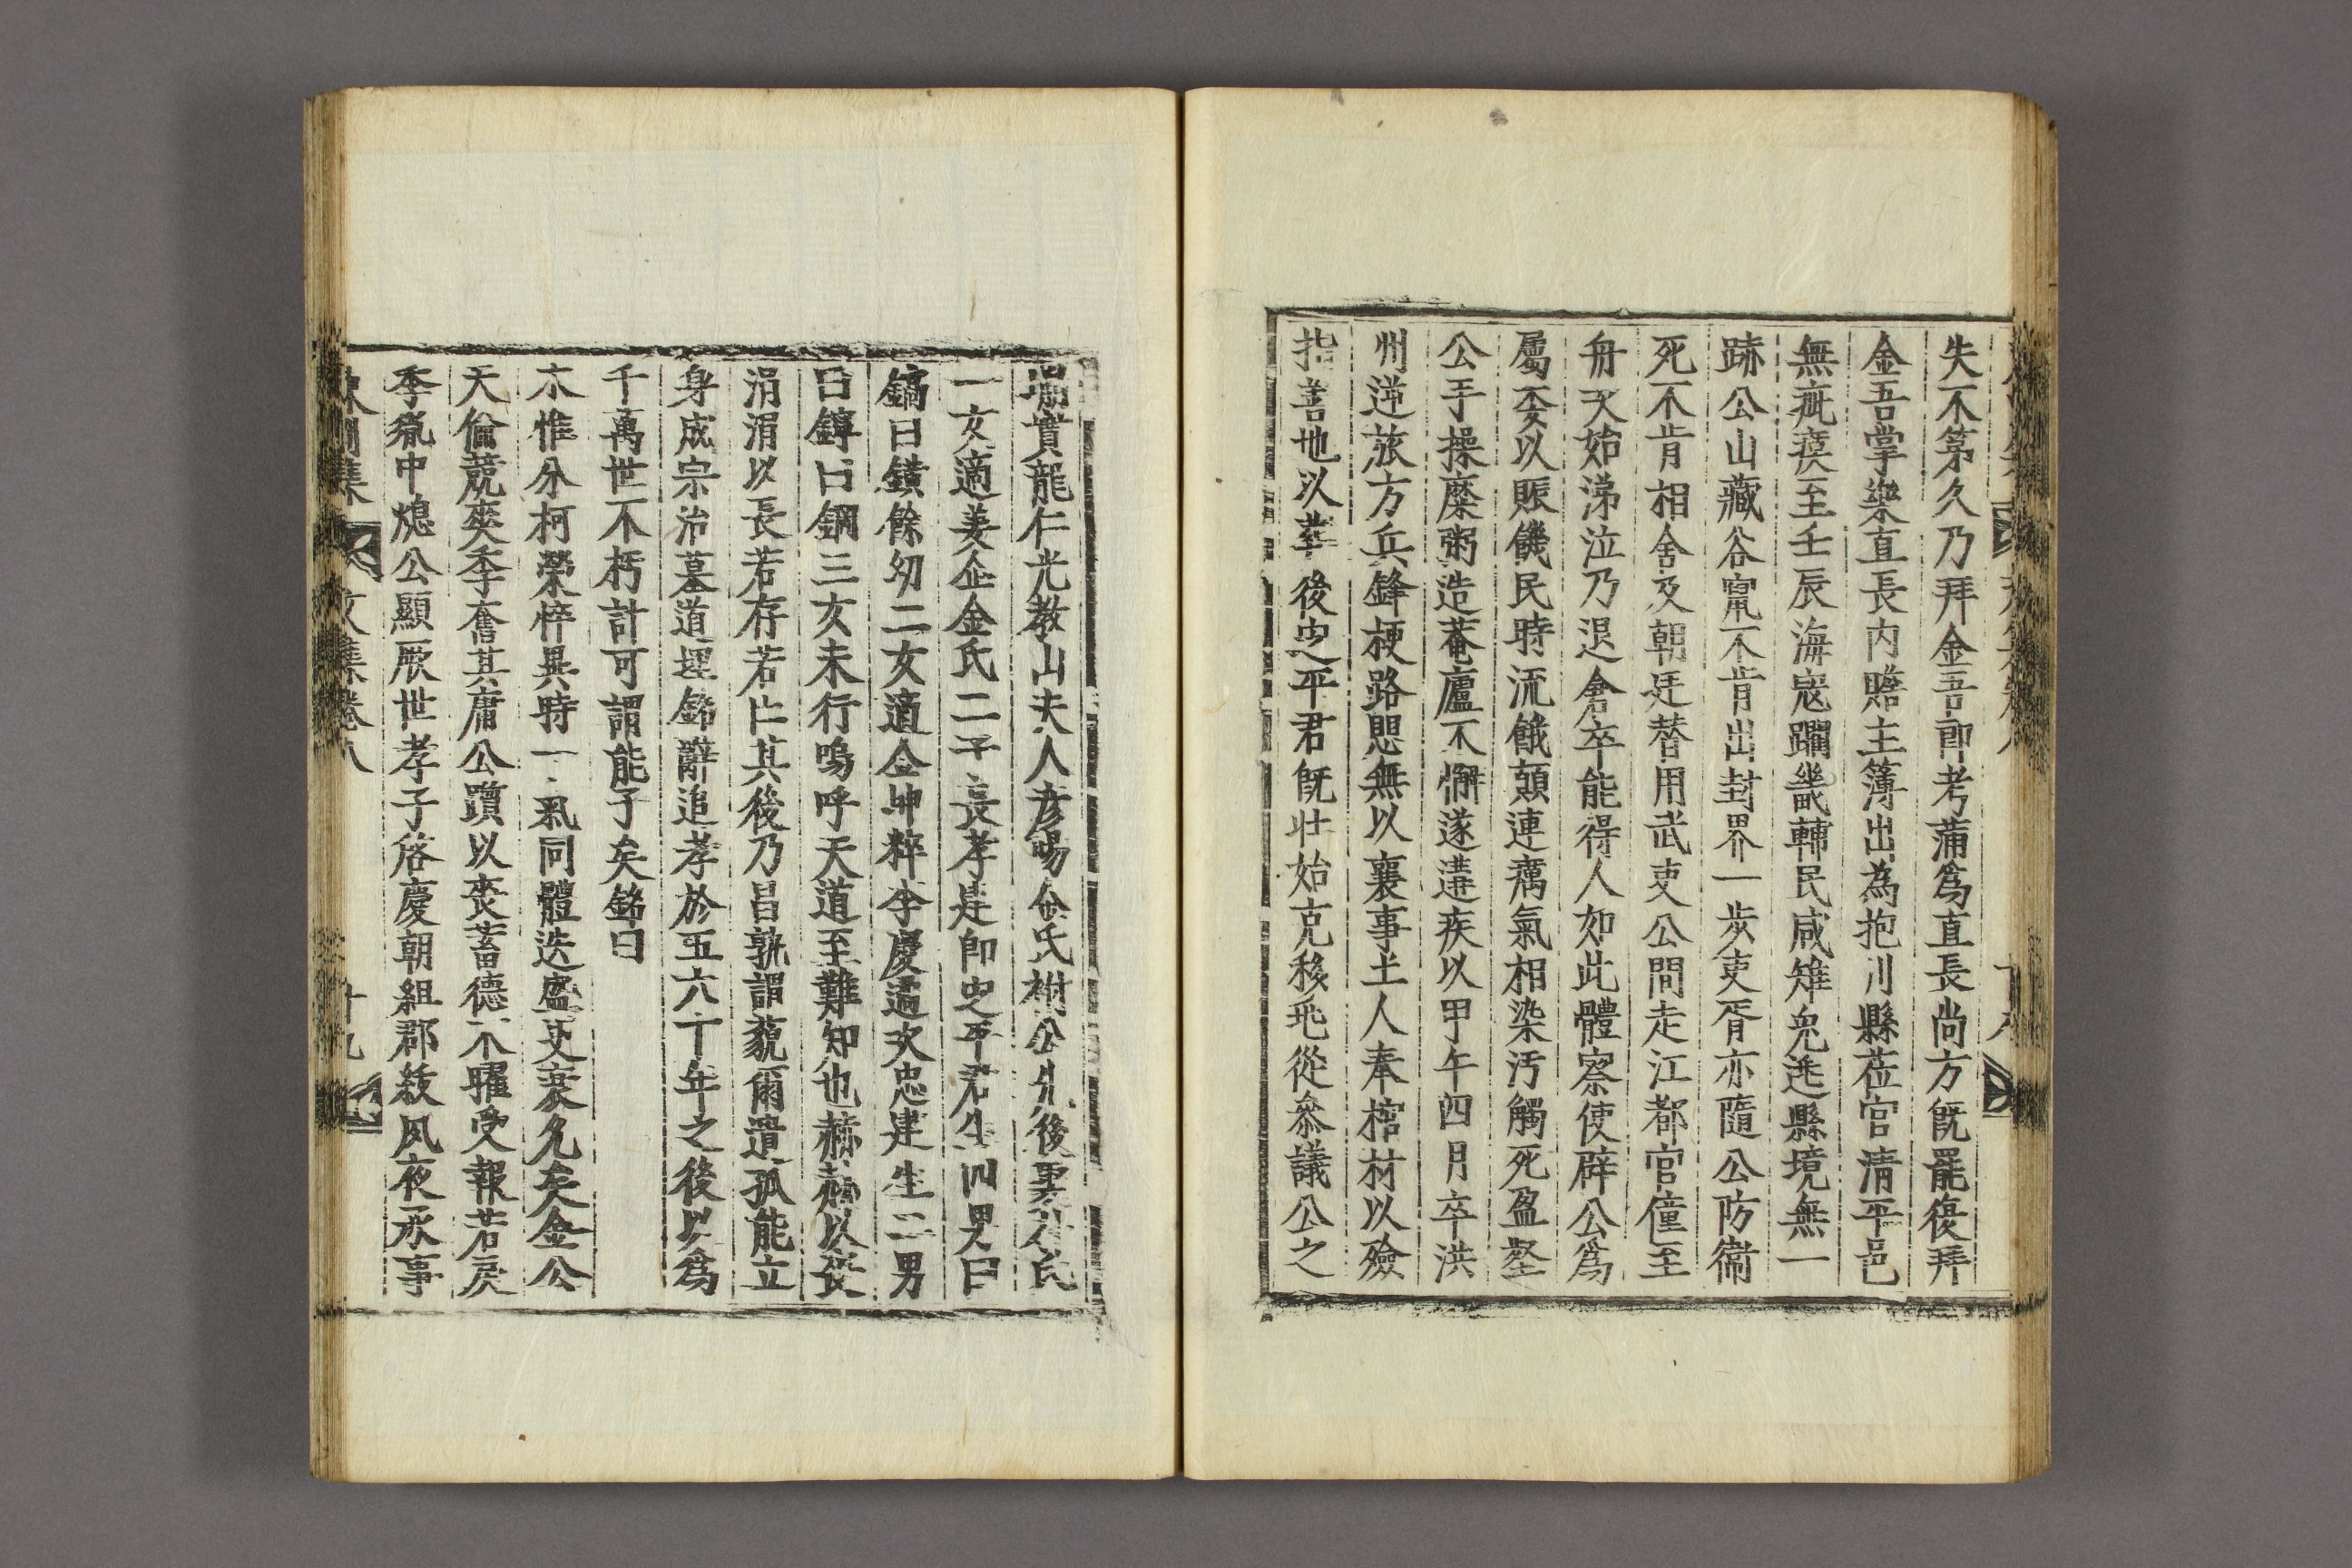 失不第久乃拜金吾郎考蒲爲直長尚方旣罷復拜
金吾掌樂直長內贍主簿出為抱川縣莅官清平邑
無疵瘼至壬辰海寇躪畿輔民咸雉兎逃縣境無一
跡公山藏谷竄不肯出封界一步吏胥亦隨公防衛
死不肯相舍及朝廷替用武吏公間走江都官僮至
舟次始涕泣乃退倉卒能得人如此體察使辟公爲
屬委以賑饑民時流餓顚連癘氣相染汚觸死盈壑
公手操糜粥造菴廬不懈遂遘疾以甲午四月卒洪
州逆旅方兵鋒梗路愳無以襄事土人奉棺材以殮
指善地以葬後之平君旣壯始克移兆從叅議公之
實龍仁光敎山夫人彦陽金氏祔公先後妻氏
一女適姜企金氏二子長孝建卽之平君生四男曰
鏑曰鐄餘幼二女適金坤粹李慶遇次忠建生二男
曰鐏曰鋼三女未行嗚呼天道至難知也赫赫以長
涓涓以長若存若亡其後乃昌孰謂藐爾遺孤能立
身成宗治墓道埋銘辭追孝於五六十年之後以爲
千萬世不朽計可謂能子矣銘曰
木惟分柯榮悴異時一氣同體迭盛迭衰允矣金公
天倫競爽季奮其庸公躓以喪蓄德不曜受報若戾
季胤中熄公顯厥世孝子啓慶朝組郡紱夙夜承事
東州集 文集卷八 十九